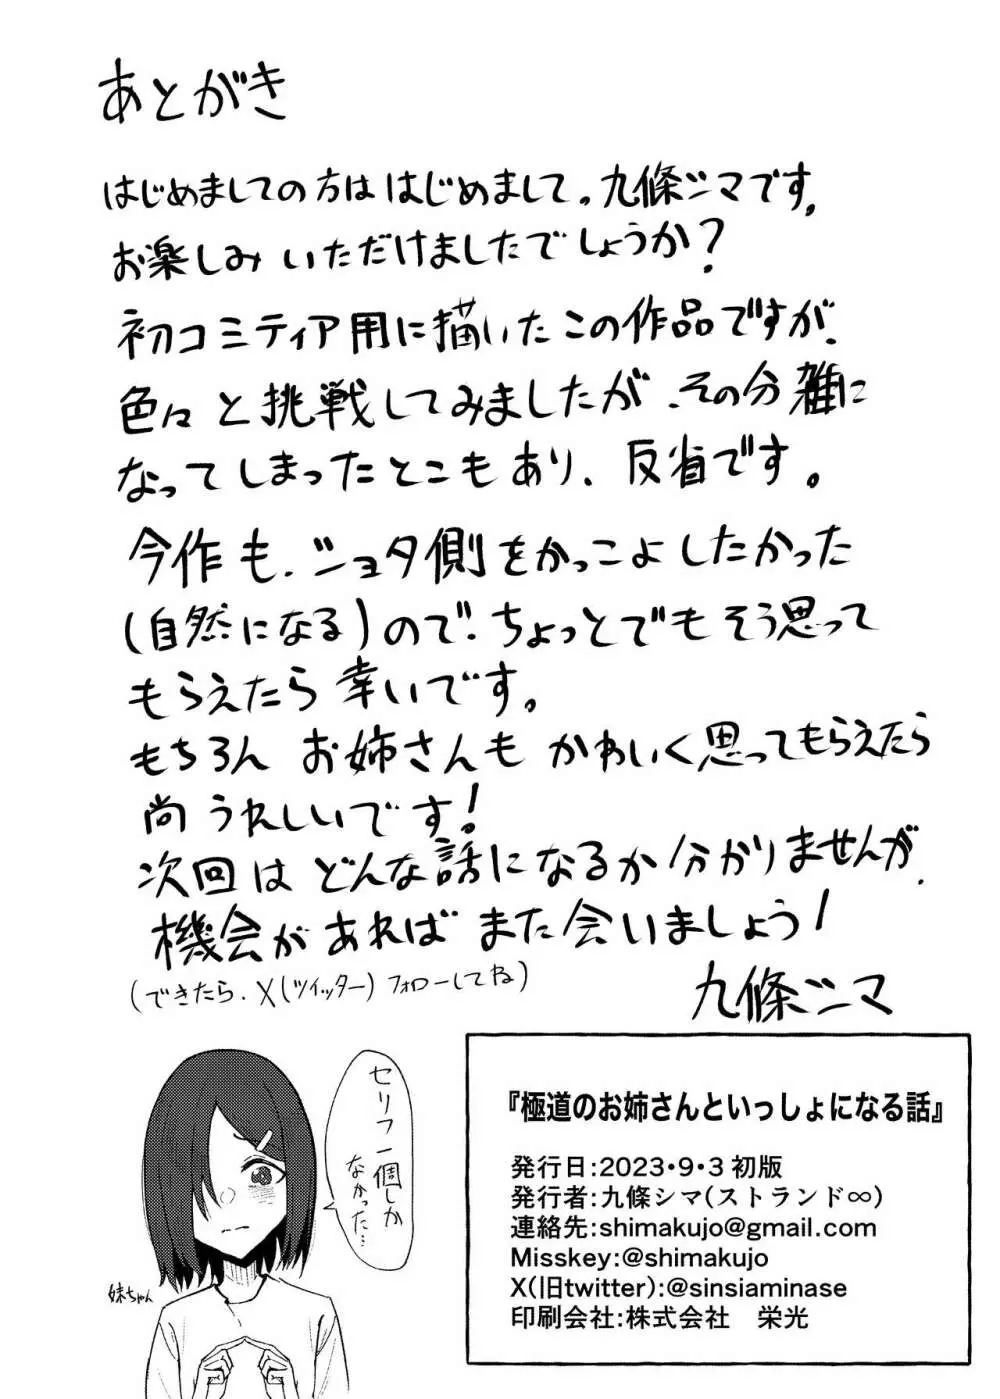 あとがき
はじめましての方は はじめまして。九條シマです。
お楽しみ いただけましたでしょうか？
初コミティア用に描いたこの作品ですが、
色々と挑戦してみましたが、その分雑に
なってしまったとこもあり、反省です。
今作も、ショタ側をかっこよしたかった
(自然になる)ので、ちょっとでもそう思って
もらえたら幸いです。
もちろん お姉さんも かわいく思ってもらえたら
尚うれしいです！
次回は どんな話になるか分かりませんが、
機会があれば また会いましょう！
(できたら、X(ツイッター)フォローしてね)
九條シマ
セリフ一個しか
なかった…
妹ちゃん
『極道のお姉さんといっしょになる話』
発行日:2023・9・3 初版
発行者:九條シマ(ストランド∞)
連絡先:shimakujo@gmail.com
Misskey:@shimakujo
X(旧twitter):@sinsiaminase
印刷会社:株式会社　栄光